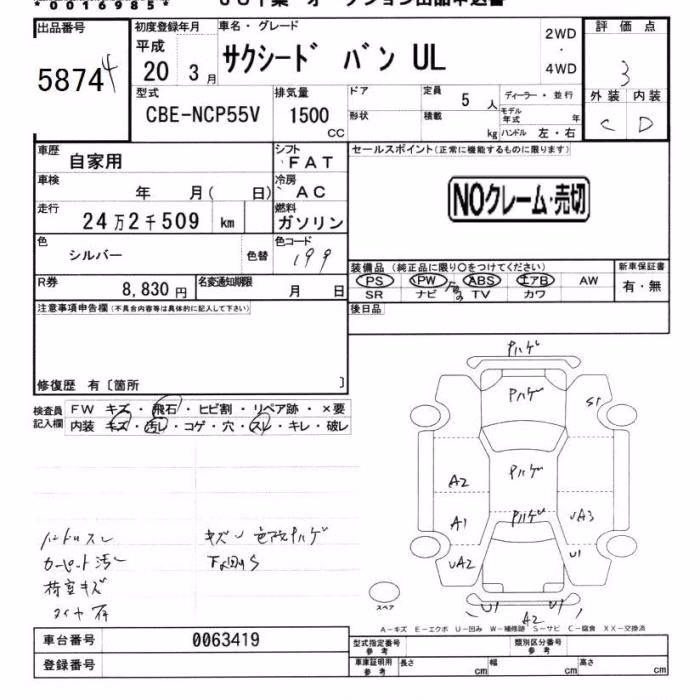 *00169885*
出品番号 初度登録年月 車名・グレード 2WD 評価点
5874 4 平成 20 3月 サクシード バン UL ・ 4WD 3
型式 排気量 ドア 定員 5人 ディーラー・並行 外装 内装
CBE-NCP55V 1500 cc 形状 積載 kg モデル年式 年 ハンドル 左・右 C D
車歴 自家用 シフト FAT セールスポイント(正常に機能するものに限ります)
車検 年 月( 日) 冷房 AC
走行 24万2千509 km 燃料 ガソリン NOクレーム・売切
色 シルバー 色替 色コード 199
装備品(純正品に限り○をつけてください) 新車保証書
R券 8,830円 名変通知期限 月 日 PS PW ABS エアB AW 有・無
SR ナビ TV カワ
注意事項申告欄(不具合内容等は具体的に記入して下さい) 後日品
修復歴 有〔箇所 〕
検査員記入欄 FW キズ・飛石・ヒビ割・リペア跡・×要
内装 キズ・汚レ・コゲ・穴・スレ・キレ・破レ
Pハゲ
Pハゲ
S1
Pハゲ
A2
Pハゲ
A1 UA3
UA2 U1
U1 U1
A2
ハンドルスレ キズU 色改Pハゲ
カーペット汚レ 下回りS
荷室キズ
スペア
A-キズ E-エクボ U-凹み W-補修跡 S-サビ C-腐食 XX-交換済
車台番号 0063419 型式指定番号 参考 類別区分番号 参考
登録番号 車庫証明用 参考 長さ cm 幅 cm 高さ cm